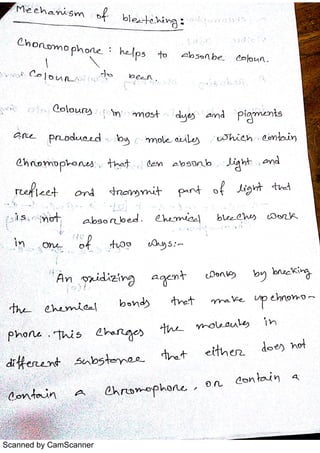 Mechanism of bleatching:
Choromophone : helps to absonbe colour.
Colour to bear
Colours in most dyes and pigments
are produced by molecules, which contain
Chromophones, that can absonb light and
reflect and transmit part of light that
is not absorbed. Chemical bleches work
in one of two ways:-
An oxidizing agent works by breking
the chemical bonds that make up chnomo-
phone. This changes the molecules in
different substance that either does not
contain a chromophone, or contain a
Scanned by CamScanner